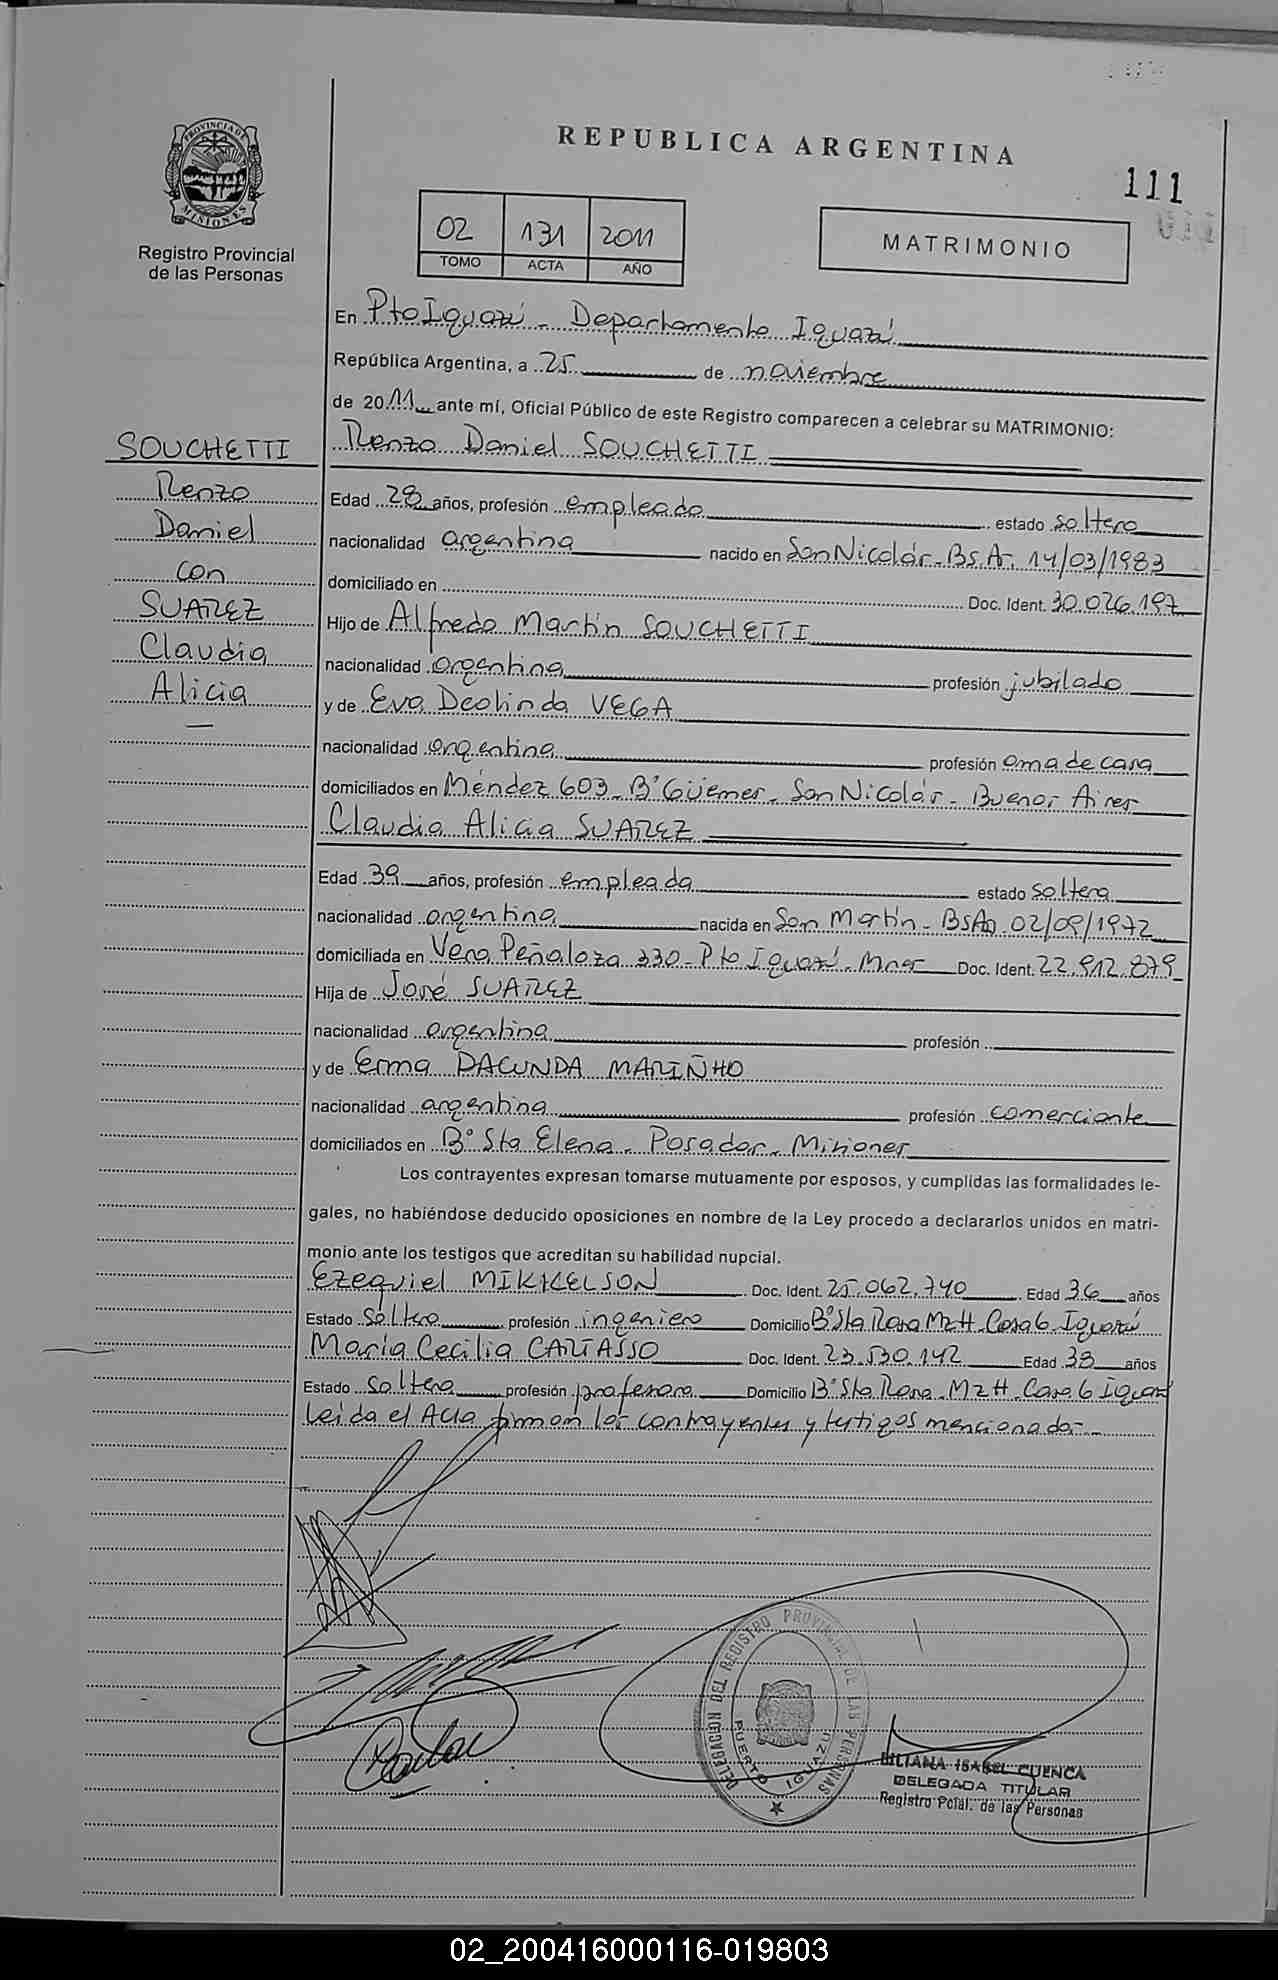 REPUBLICA ARGENTINA
111
PROVINCIA DE
MISIONES
Registro Provincial
de las Personas
02 131 2011
TOMO ACTA AÑO
MATRIMONIO
En Pto Iguazú - Departamento Iguazú
República Argentina, a 25 de noviembre
de 2011 ante mí, Oficial Público de este Registro comparecen a celebrar su MATRIMONIO:
SOUCHETTI
Renzo
Daniel
con
SUAREZ
Claudia
Alicia
Renzo Daniel SOUCHETTI
Edad 28 años, profesión empleado estado soltero
nacionalidad argentina nacido en San Nicolás - Bs. A. 14/03/1983
domiciliado en Doc. Ident. 30.026.197
Hijo de Alfredo Martín SOUCHETTI
nacionalidad argentina profesión jubilado
y de Eva Deolinda VEGA
nacionalidad argentina profesión ama de casa
domiciliados en Méndez 603 - B° Güemes - San Nicolás - Buenos Aires
Claudia Alicia SUAREZ
Edad 39 años, profesión empleada estado soltera
nacionalidad argentina nacida en San Martín - BsAs 02/09/1972
domiciliada en Vera Peñaloza 330 - Pto Iguazú - Mnes Doc. Ident. 22.912.879
Hija de José SUAREZ
nacionalidad argentina profesión
y de Erma DACUNDA MARIÑHO
nacionalidad argentina profesión comerciante
domiciliados en B° Sta Elena - Posadas - Misiones
Los contrayentes expresan tomarse mutuamente por esposos, y cumplidas las formalidades le-
gales, no habiéndose deducido oposiciones en nombre de la Ley procedo a declararlos unidos en matri-
monio ante los testigos que acreditan su habilidad nupcial.
Ezequiel MIKKELSON Doc. Ident. 25.062.740 Edad 36 años
Estado soltero profesión ingeniero Domicilio B° Sta Rosa Mz H - Casa 6 - Iguazú
María Cecilia CARTASSO Doc. Ident. 23.530.142 Edad 38 años
Estado soltera profesión profesora Domicilio B° Sta Rosa - Mz H - Casa 6 Iguazú
Leída el Acta firman los contrayentes y testigos mencionados -
DELEGACION DEL REGISTRO PROVINCIAL DE LAS PERSONAS
PUERTO IGUAZU
LILIANA ISABEL CUENCA
DELEGADA TITULAR
Registro Pcial. de las Personas
02_200416000116-019803